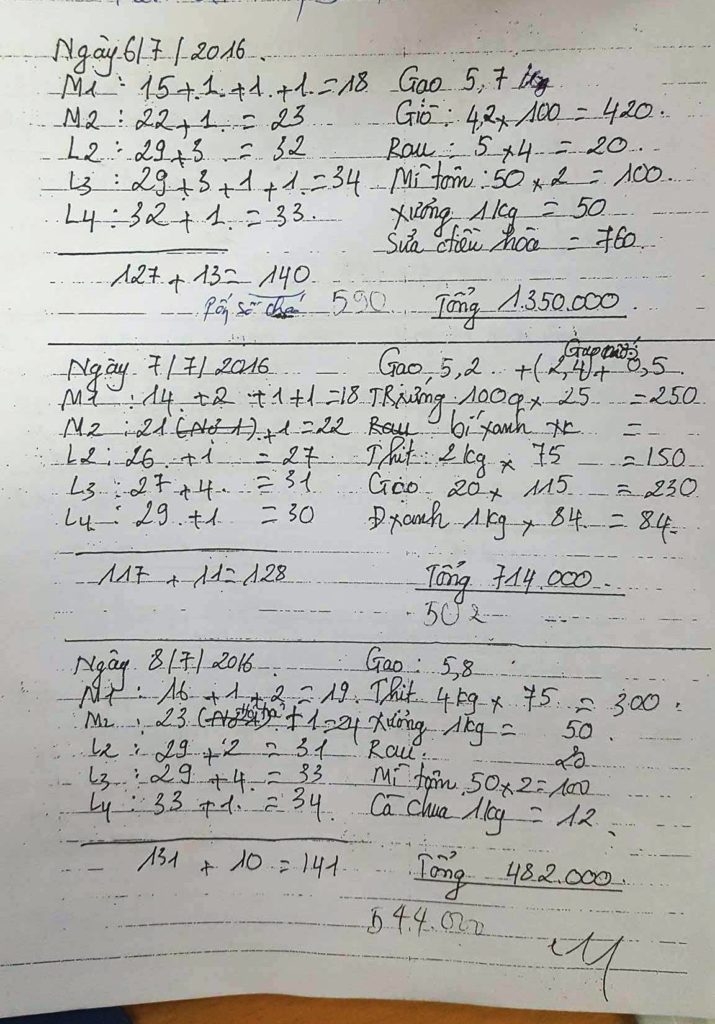 Ngày 6/7/2016.
M1 : 15+1+1+1=18 Gao 5,7 kg
M2 : 22+1. = 23 Giò : 4,2 x 100 = 420.
L2 : 29+3 = 32 Rau : 5 x 4 = 20.
L3 : 29+3+1+1.=34 Mì tôm : 50 x 2 = 100.
L4 : 32+1. = 33. Xương 1kg = 50
Sữa chiều hoà = 760.
127 + 13 = 140
590 Tổng 1.350.000.
Ngày 7/7/2016 Gao 5,2 + (2,4) + 0,5
M1 : 14 +2 +1+1=18 Trứng 100q x 25 = 250
M2 : 21 +1 = 22 Rau bí xanh =
L2 : 26 +1 = 27 Thit 2kg x 75 = 150
L3 : 27 +4. = 31 Gáo 20 x 115 = 230
L4 : 29 +1 = 30 Đxanh 1kg x 84. = 84.
117 + 11 = 128 Tổng 714.000.
502
Ngày 8/7/2016. Gao : 5,8
M1 : 16 +1 +2 = 19. Thit 4kg x 75 = 300.
M2 : 23 +1 = 24 Xương 1kg = 50.
L2 : 29 +2 = 31 Rau. 20
L3 : 29 +4. = 33 Mì tôm 50 x 2 = 100
L4 : 33 +1. = 34. Cà chua 1kg = 12.
131 + 10 = 141 Tổng 482.000.